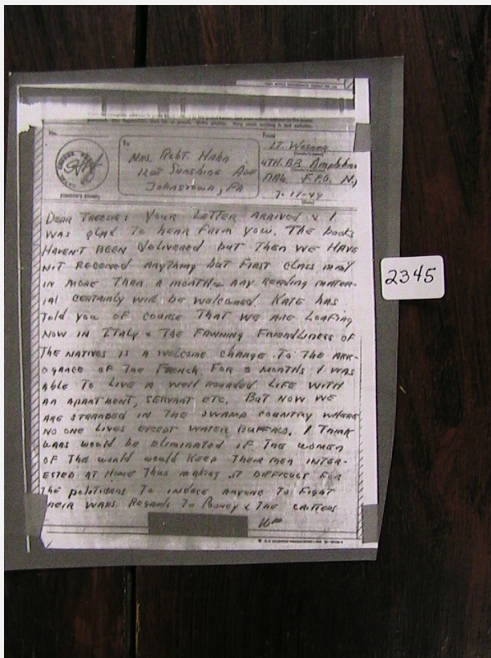 To
Mrs. Robt. Hahn
Sunshine Ave
Johnstown, PA
From
Lt.
4TH. BB.
F.P.O. N.Y
7-17-44
DEAR TREESIE: YOUR LETTER ARRIVED & I
WAS GLAD TO HEAR FROM YOU. THE BOOKS
HAVEN'T BEEN DELIVERED BUT THEN WE HAVE
NOT RECEIVED ANYTHING BUT FIRST CLASS MAIL
IN MORE THAN A MONTH. ANY READING MATER-
IAL CERTAINLY WILL BE WELCOMED. KATE HAS
TOLD YOU OF COURSE THAT WE ARE LOAFING
NOW IN ITALY & THE FAWNING FRIENDLINESS OF
THE NATIVES IS A WELCOME CHANGE TO THE ARR-
OGANCE OF THE FRENCH. FOR MONTHS I WAS
ABLE TO LIVE A WELL ROUNDED LIFE WITH
AN APARTMENT, SERVANT ETC. BUT NOW WE
ARE STRANDED IN THE SWAMP COUNTRY WHERE
NO ONE LIVES EXCEPT WATER BUFFALO. I THINK
WARS WOULD BE ELIMINATED IF THE WOMEN
OF THE WORLD WOULD KEEP THEIR MEN INTER-
ESTED AT HOME THUS MAKING IT DIFFICULT FOR
THE POLITICIANS TO INDUCE ANYONE TO FIGHT
THEIR WARS. REGARDS TO & THE CRITTERS
2345